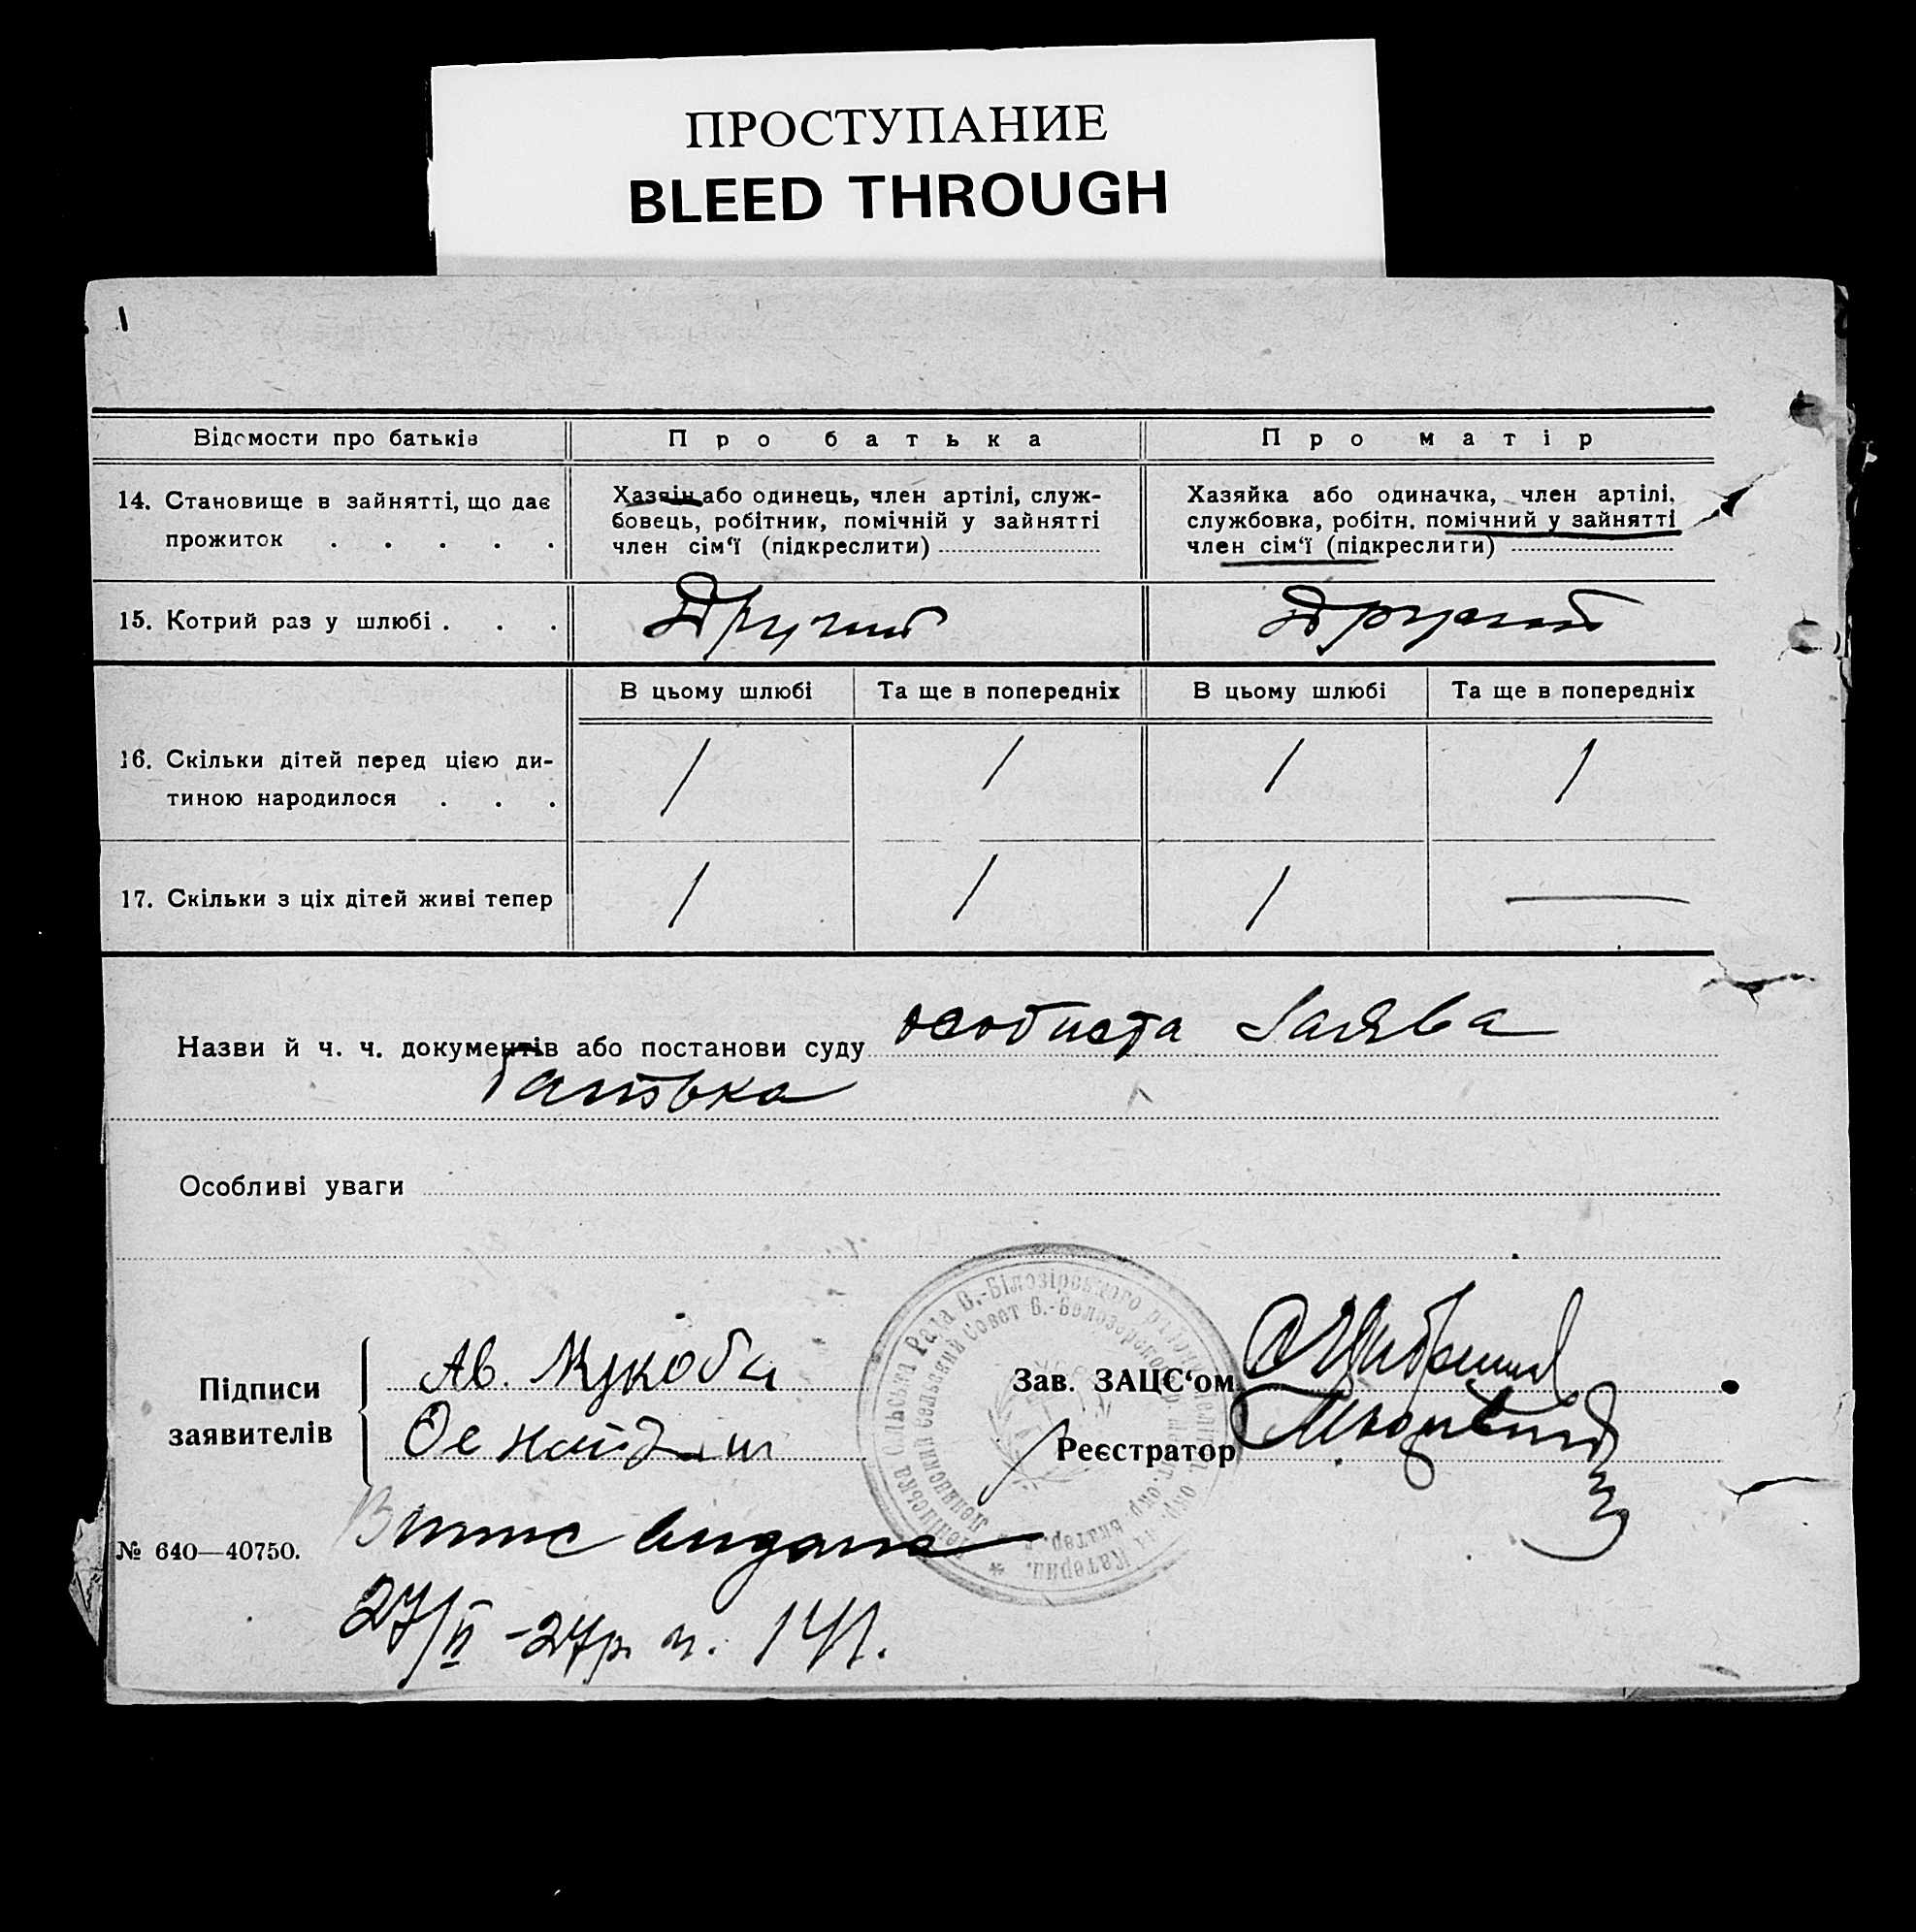 ПРОСТУПАНИЕ
BLEED THROUGH
1
Відомости про батьків
Про батька
Про матір
14. Становище в зайнятті, що дає
прожиток . . . . .
Хазяін або одинець, член артілі, служ-
бовець, робітник, помічній у зайнятті
член сім‘ї (підкреслити)
Хазяйка або одиначка, член артілі,
службовка, робітн. помічний у зайнятті
член сім‘ї (підкреслити)
15. Котрий раз у шлюбі . . .
Другий
Другий
В цьому шлюбі
Та ще в попередніх
В цьому шлюбі
Та ще в попередніх
16. Скільки дітей перед цією ди-
тиною народилося . . .
/ / / /
17. Скільки з ціх дітей живі тепер
/ / / —
Назви й ч. ч. документів або постанови суду особиста заява
батька
Особливі уваги
Підписи
заявителів
Ав.
Зав. ЗАЦС‘ом
Реєстратор
№ 640—40750.
видана
27/VI -27р. н. 141.